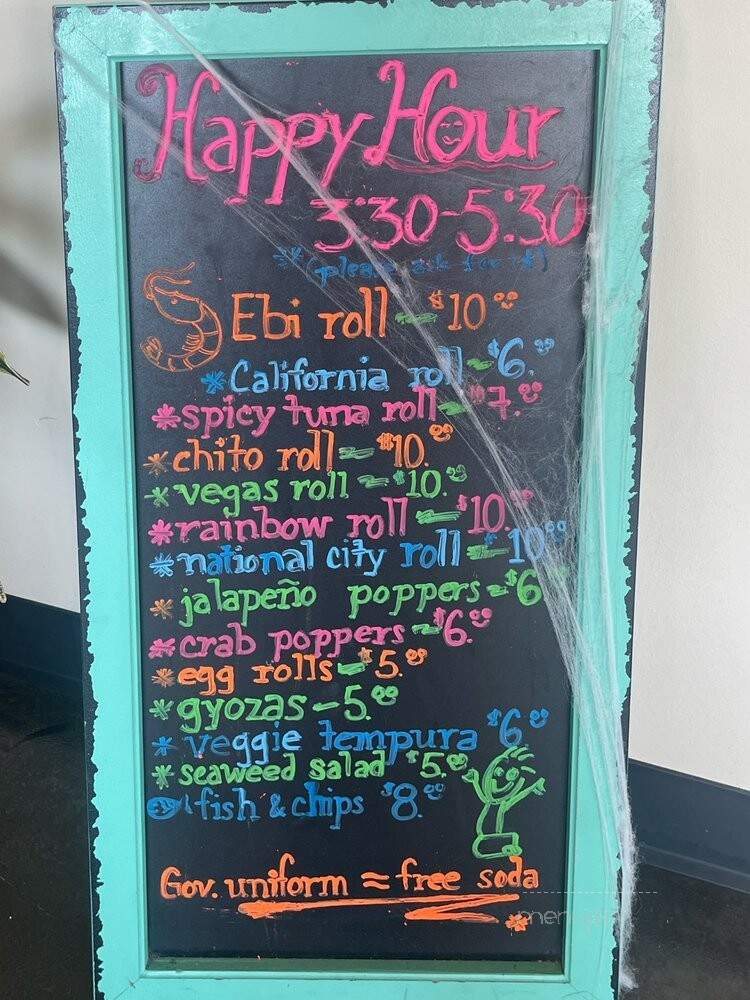 Happy Hour
3:30-5:30
**(please ask for it)
Ebi roll - $10.00
*California roll - $6.00
*spicy tuna roll - $7.00
*chito roll = $10.00
*vegas roll = $10.00
*rainbow roll - $10.00
*national city roll - $10.00
*jalapeño poppers - $6
*crab poppers - $6.00
*egg rolls - $5.00
*gyozas - 5.00
*veggie tempura $6.00
*seaweed salad $5.00
fish & chips $8.00
Gov. uniform = free soda
*